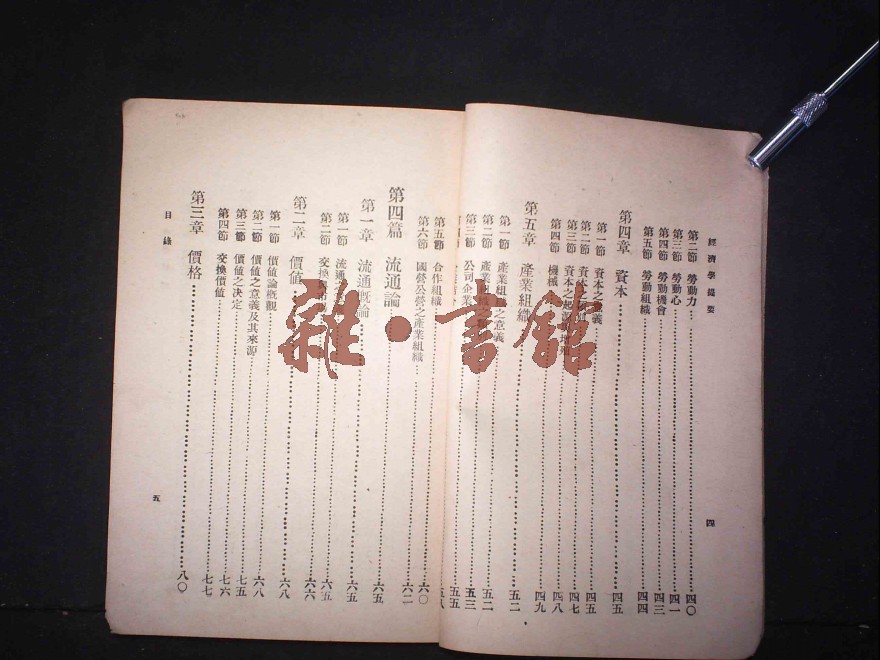 經濟學提要
第二節 勞動力 四〇
第三節 勞動心 四一
第四節 勞動機會 四三
第五節 勞動組織 四四
第四章 資本 四五
第一節 資本之意義 四五
第二節 資本 四七
第三節 資本之起源 四八
第四節 機械 四九
第五章 產業組織 五二
第一節 產業組織之意義 五二
第二節 產業組織之 五三
第三節 公司企業 五五
五八
四
第五節 合作組織 六〇
第六節 國營公營之產業組織 六二
第四篇 流通論 六五
第一章 流通概論 六五
第一節 流通 六五
第二節 交換 六六
第二章 價值 六八
第一節 價值論概觀 六八
第二節 價值之意義及其來源 七五
第三節 價值之決定 七六
第四節 交換價值 七七
第三章 價格 八〇
目錄
五
雜·書館